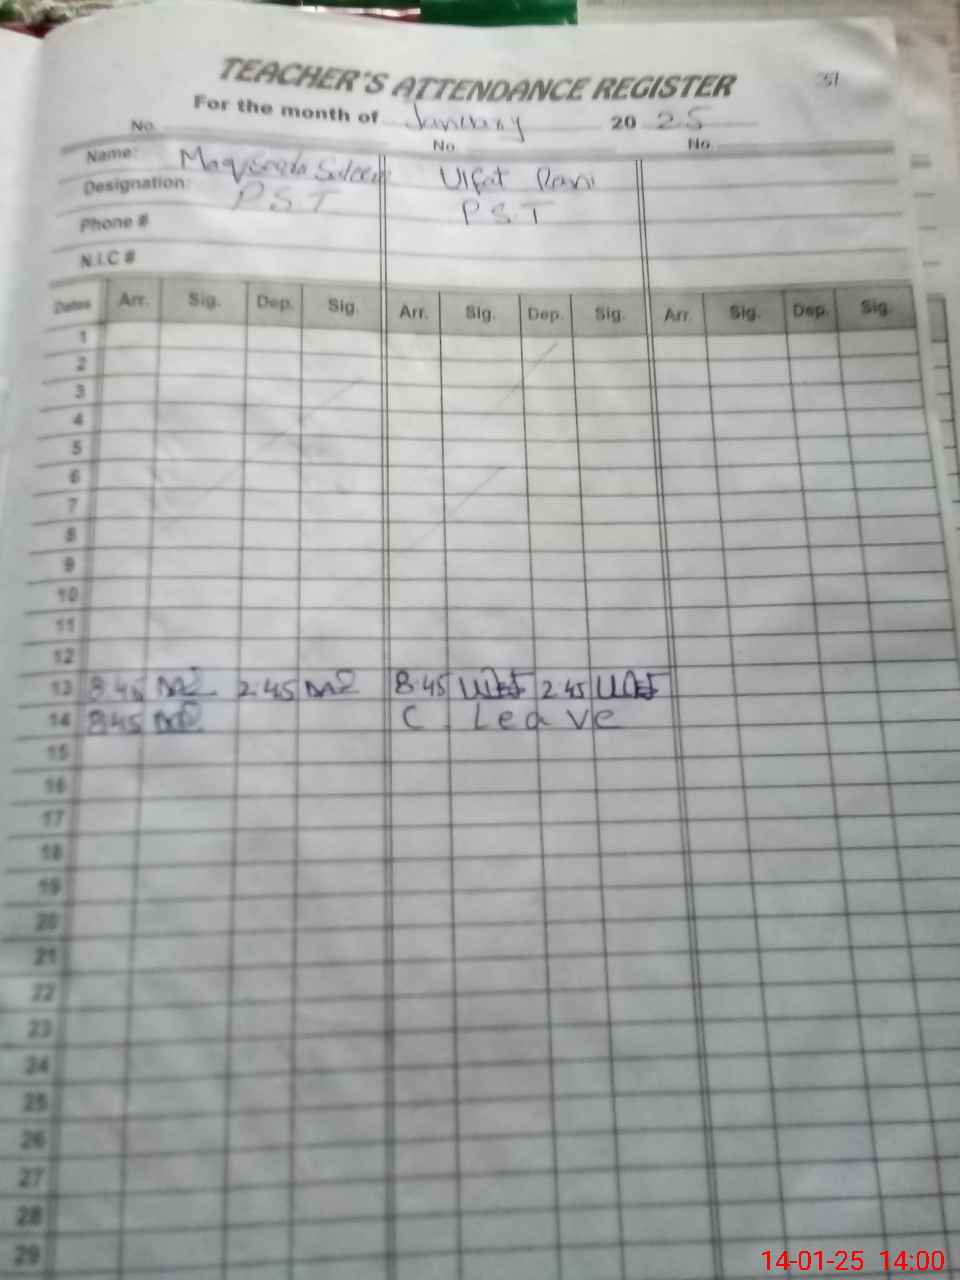 TEACHER'S ATTENDANCE REGISTER
51
For the month of January 2025
No. No. No.
Name: Ulfat Rani
Designation: P.S.T P.S.T
Phone #
N.I.C #
Dates Arr. Sig. Dep. Sig. Arr. Sig. Dep. Sig. Arr. Sig. Dep. Sig.
1
2
3
4
5
6
7
8
9
10
11
12
13 8.45 2.45 8.45 2.45
14 8.45 C. Leave
15
16
17
18
19
20
21
22
23
24
25
26
27
28
29
14-01-25 14:00